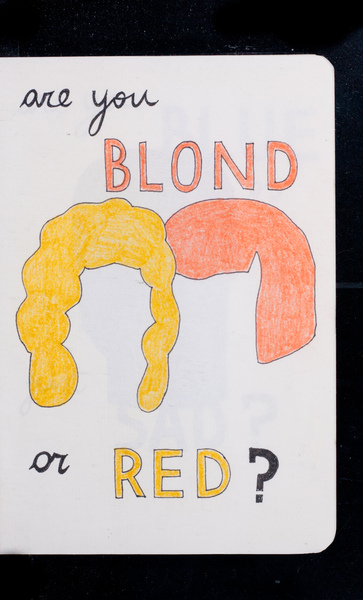 are you
BLOND
or RED?